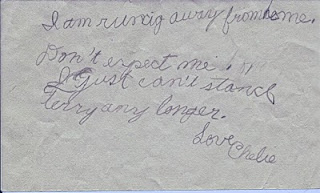 I am runcig away from home.
Don't expect me
I just can't stand
Terry any longer.
Love
Chelie